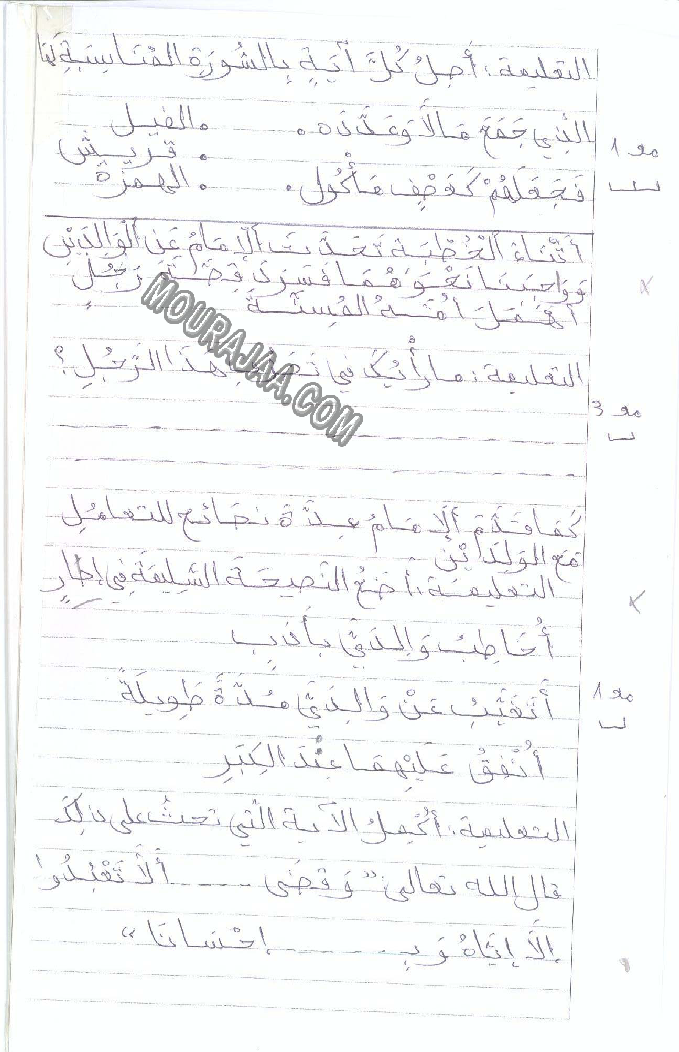 التعليمة : أصِلُ كُلَّ آيَةٍ بِالسُّورَةِ المُنَاسِبَةِ لَهَا
الَّذِي جَمَعَ مَالاً وَعَدَّدَه . . الفيل
. قريش
مع 1
فَجَعَلَهُمْ كَعَصْفٍ مَأْكُولٍ . . الهمزة
أَثْنَاءَ الْخُطْبَةِ تَحَدَّثَ الإِمَامُ عَنِ الْوَالِدَيْنِ
وَوَاجِبَنَا نَحْوَهُمَا فَسَرَدَ قِصَّةَ رَجُلٍ
أَهْمَلَ أُمَّهُ المُسِنَّةَ
MOURAJAA.COM
التعليمة : ما رأْيُكَ في تَصَرُّفِ هَذَا الرَّجُلِ ؟
مع 3
كَمَا قَدَّمَ الإِمَامُ عِدَّةَ نَصَائِح للتعامُلِ
مَعَ الوَالِدَيْنِ
التعليمة : أضَعُ النَّصِيحَةَ السَّلِيمَةَ فِي إطَارٍ
أُخَاطِبُ وَالِدَيَّ بِأَدَبٍ
أَتَغَيَّبُ عَنْ وَالِدَيَّ مُدَّةً طَوِيلَةً
مع 1
أُنْفِقُ عَلَيْهِمَا عِنْدَ الكِبَرِ
التعليمة : أُكْمِلُ الآيَةَ الَّتِي تَحُثُّ على ذلِكَ
قال الله تعالى " وَقَضَى ------ أَلاَّ تَعْبُدُوا
إلاَّ إيَّاهُ وَبِـ ------ إحْسَانًا "